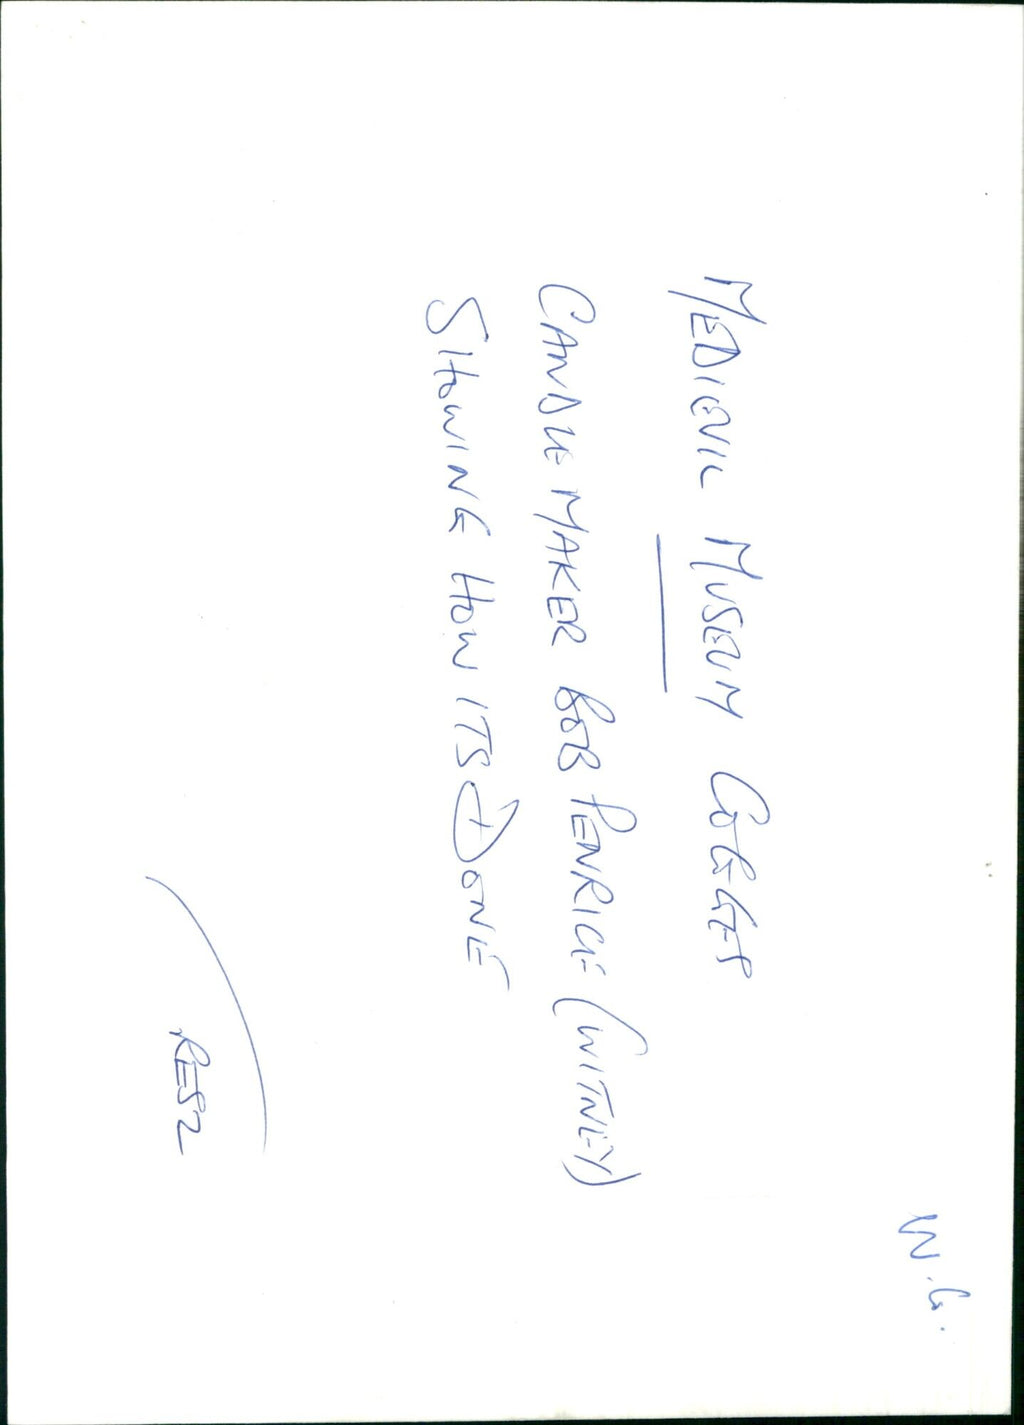 W.G.
MEDIEVIL MUSEUM COGGES
CANDLE MAKER BOB PENRICE (WITNEY)
SHOWING HOW ITS DONE
RES2